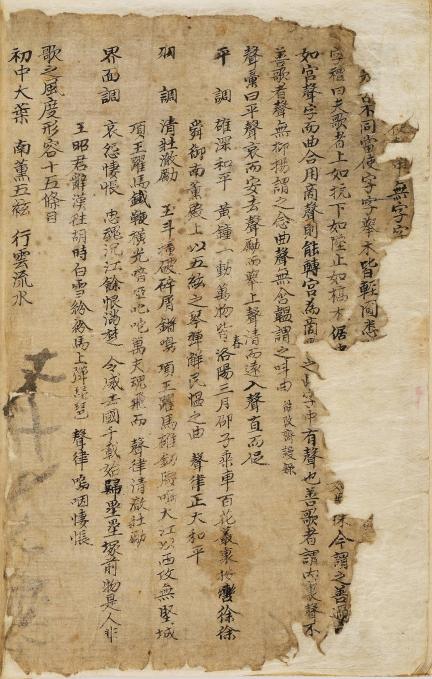 無字字
不同當使字字擧本皆輕圓悉
字禮曰夫歌者上如抗下如墜止如槁木倨中
殊今謂之善過
如宮聲字而曲合用商聲則能轉宮為商 之 字中有聲也善歌者謂內裏聲不
善歌者聲無抑揚謂之念曲聲無含韞謂之叫曲
聲彙曰平聲哀而安去聲勵而擧上聲清而遠入聲直而促
平調 雄深和平 黃鍾一動萬物皆春 洛陽三月邵子乘車百花叢裏按轡徐徐
舜御南薰殿上以五絃之琴彈解民慍之曲 聲律正大和平
羽調 清壯激勵 玉斗撞破碎屑鏘鳴 項王躍馬雄釰腰鳴大江以西攻無堅城
項王躍馬鐵鞭橫光喑啞叱咤萬夫魂飛 聲律清澈壯勵
界面調 哀怨悽悵 忠魂沉江餘恨滿楚 令威去國千載始歸壘壘塚前物是人非
王昭君辭漢往胡時白雪紛紛馬上彈琵琶 聲律嗚咽悽悵
歌之風度形容十五條目
初中大葉 南薰五絃 行雲流水